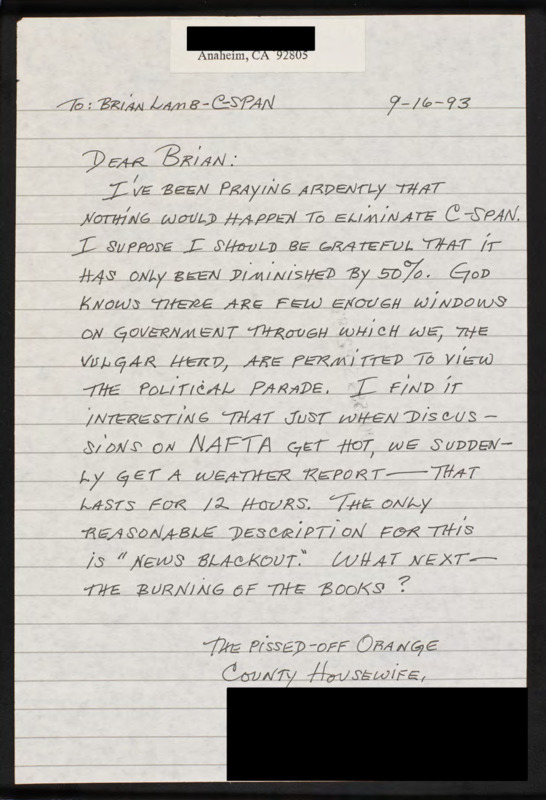 Anaheim, CA 92805
To: Brian Lamb - C-SPAN 9-16-93
Dear Brian:
I've been praying ardently that
nothing would happen to eliminate C-SPAN.
I suppose I should be grateful that it
has only been diminished by 50%. God
knows there are few enough windows
on government through which we, the
vulgar herd, are permitted to view
the political parade. I find it
interesting that just when discus-
sions on NAFTA get hot, we sudden-
ly get a weather report — that
lasts for 12 hours. The only
reasonable description for this
is "news blackout." What next —
the burning of the books?
The pissed-off Orange
County Housewife,